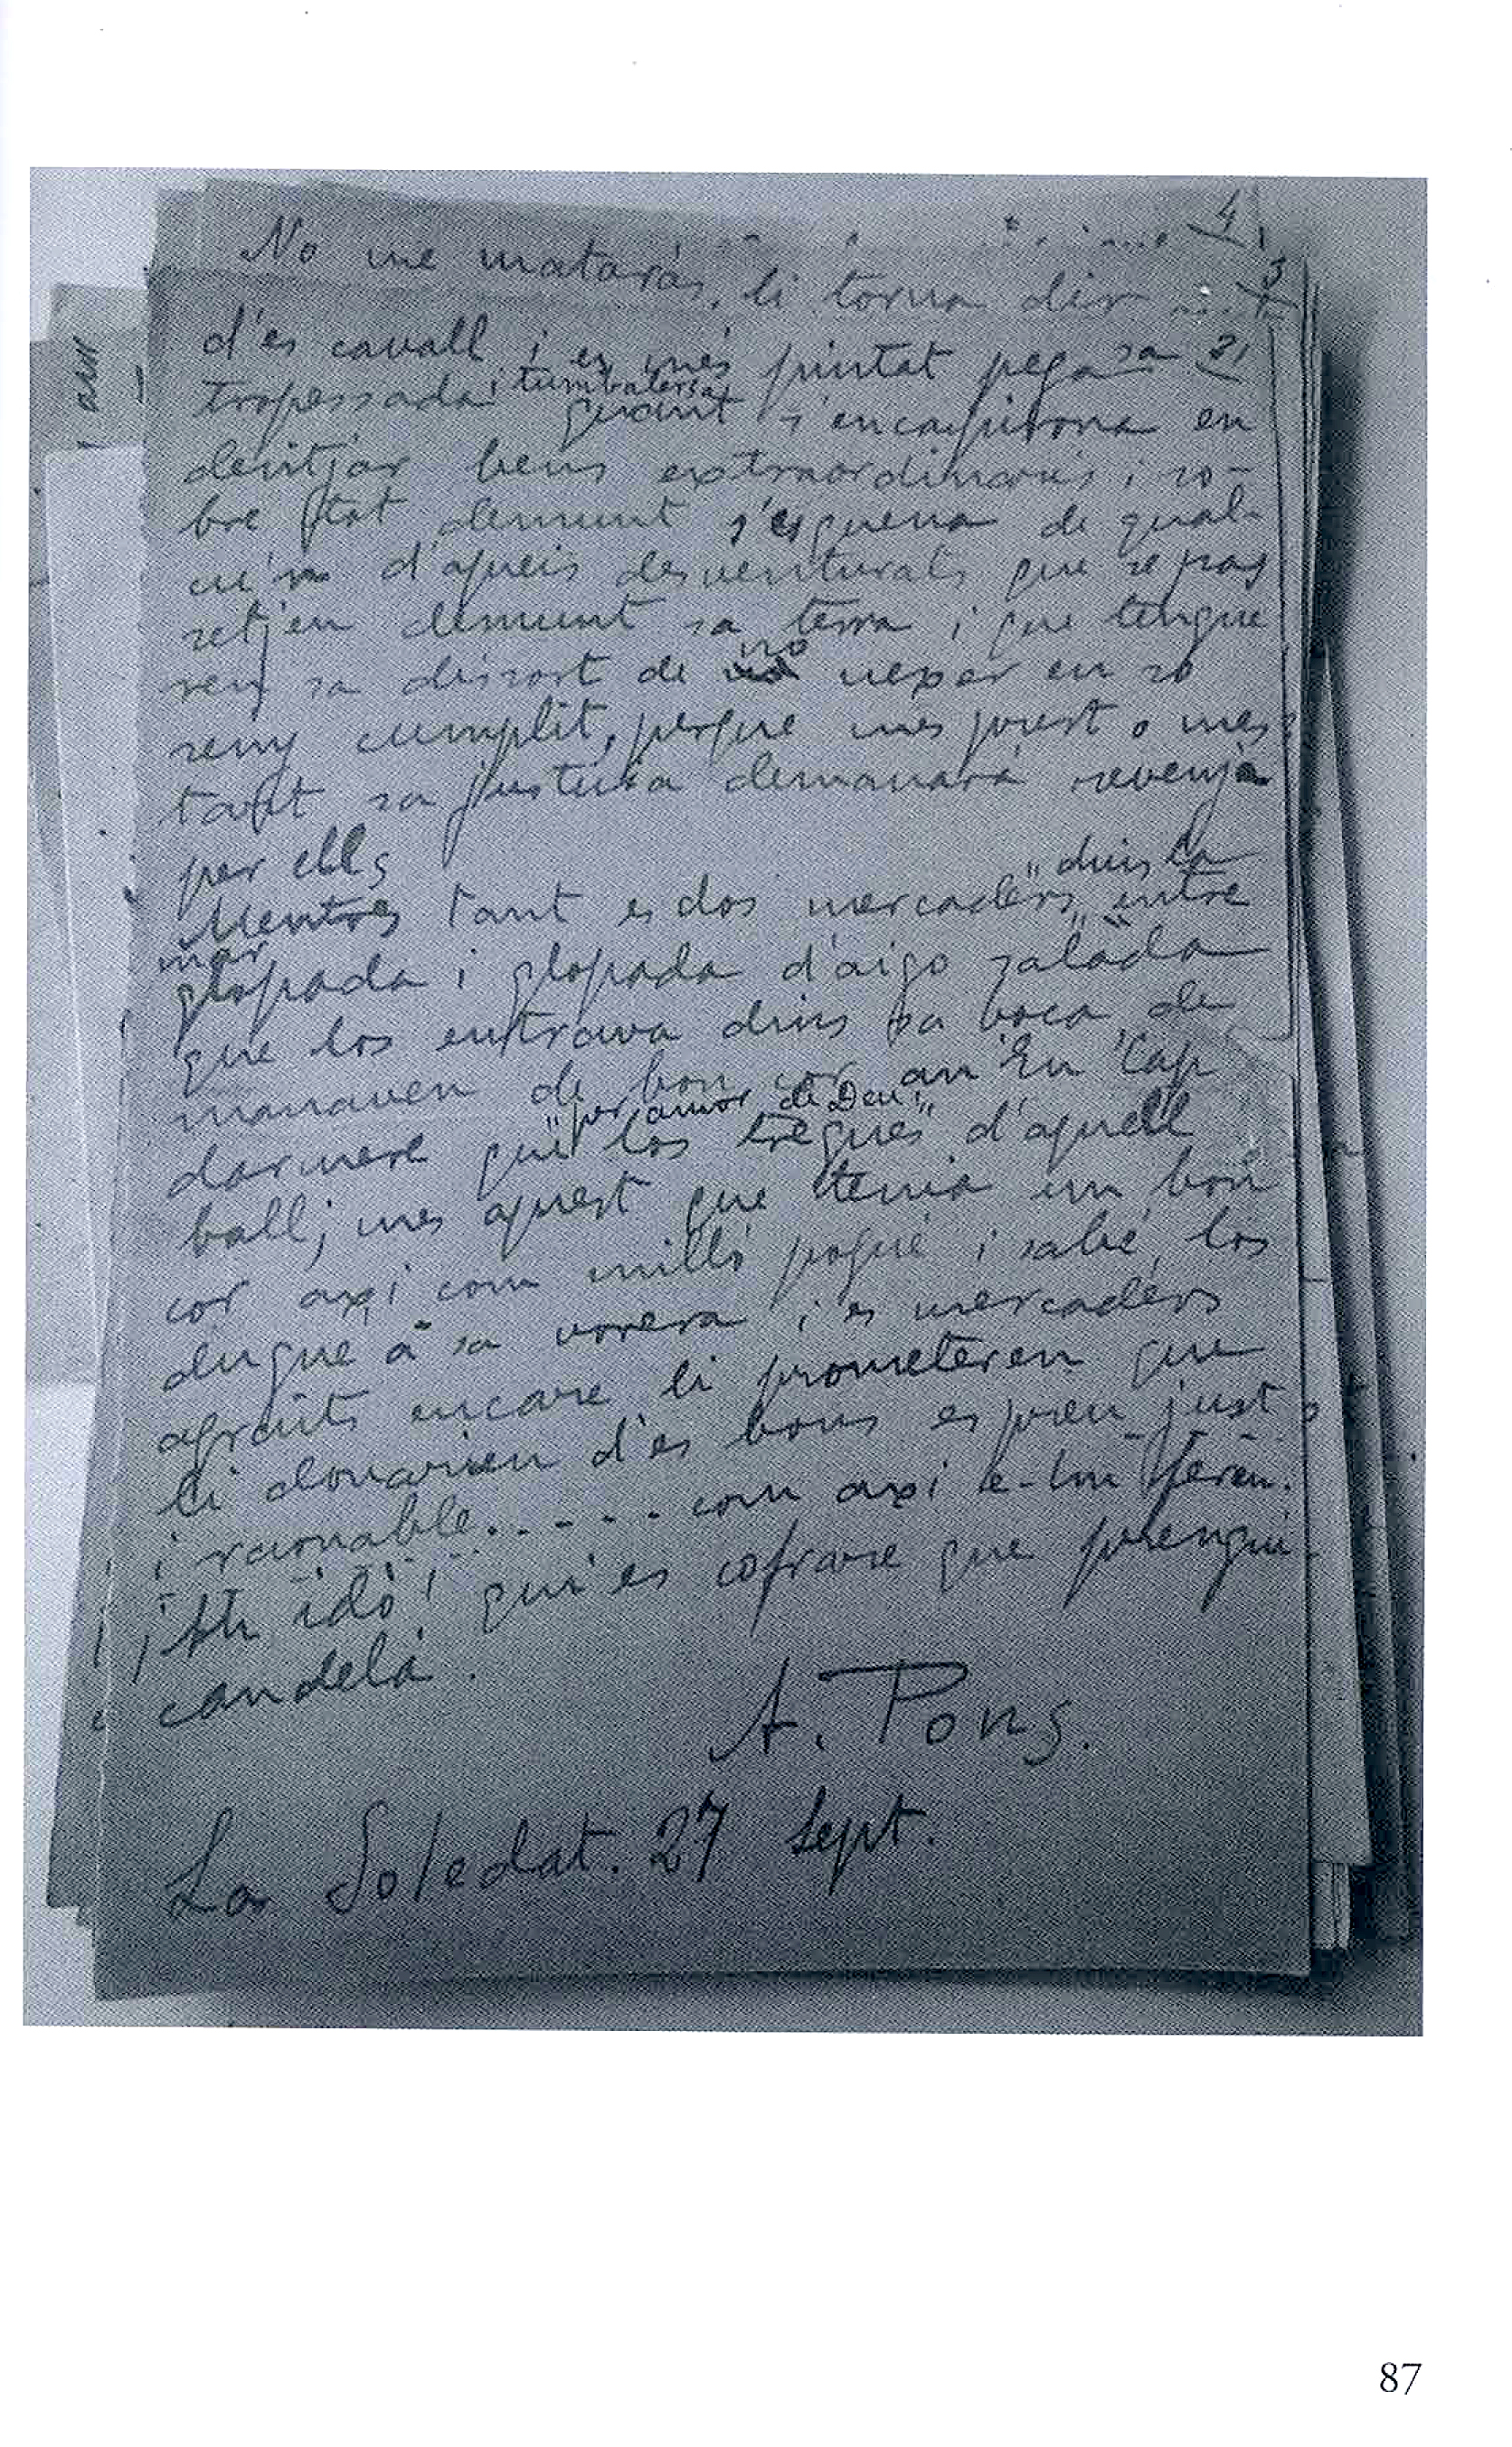 4
3
No me matarás, li torna dir
2,
d'es cavall i es més pintat pega sa
tropessada i tumbatersa
quant s'encapirona en
desitjar bens extraordinaris i so-
bre tot demunt s'esquena de qual-
cún d'aqueis desventurats que se pas
setjen demunt sa terra i que tengue
ren sa dissort de no nexer en so
seny cumplit, perque mes prest o mes
tart sa justicia demanará revenja
per ells
Mentres tant es dos mercaders "dins la
mar" entre
glopada i glopada d'aigo salada
que los entrava dins sa boca de
manaven de bon cor an 'En Cap
darmere quit los "per amor de Deu" tregues d'aquell
ball; mes aquest que tenia un bon
cor axi com milló pogué i sabé, los
dugue a sa vorera i es mercaders
agraits encare li prometeren que
li donarien d'es bons es preu just
i raonable...... com axi le-hi feren.
¡Ah idò! qui es cofrare que prengui
candela.
A. Pons.
La Soledat. 27 Sept.
87